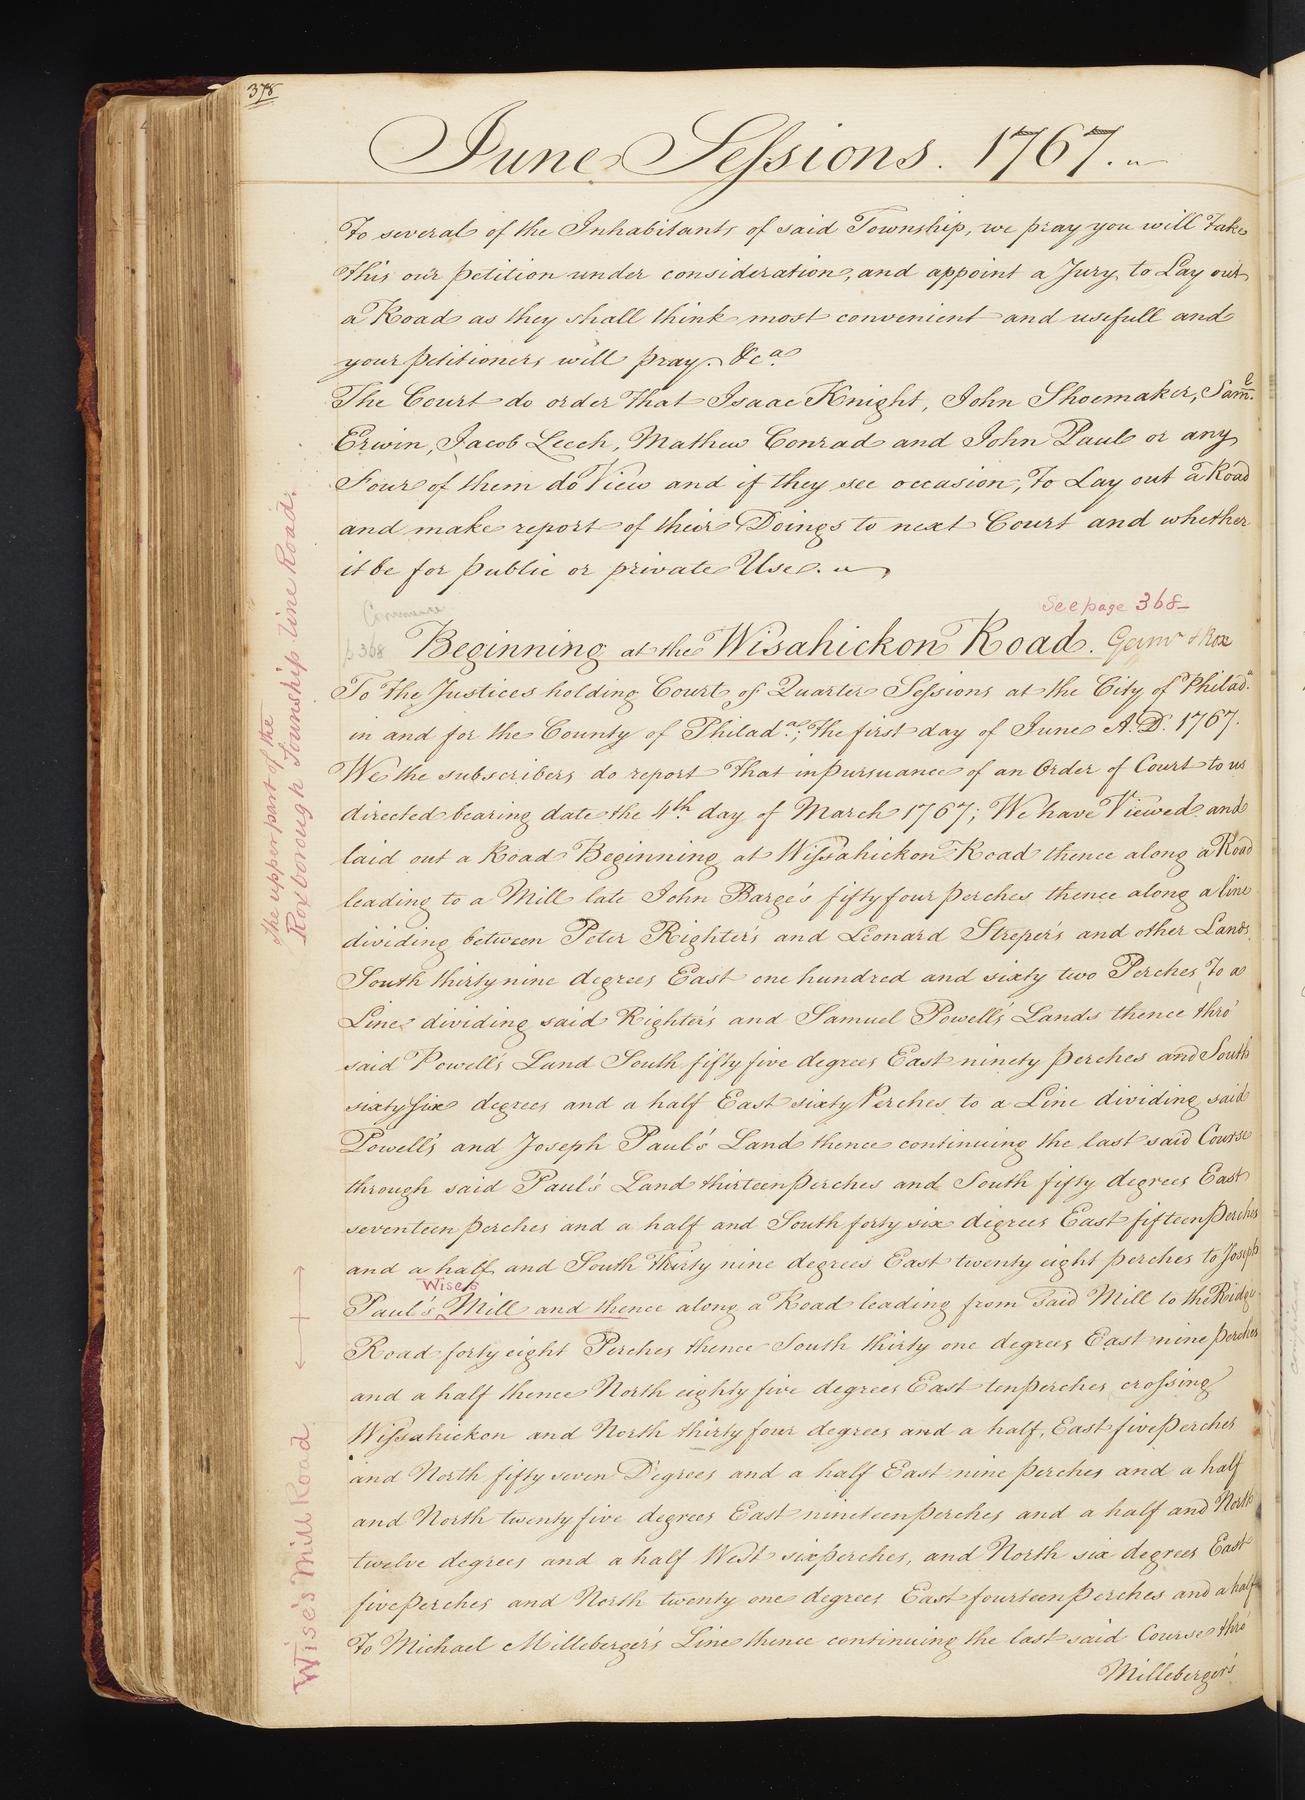 378
June Sessions. 1767.
To several of the Inhabitants of said Township, we pray you will take
this our petition under consideration, and appoint a Jury to Lay out
a Road as they shall think most convenient and usefull and
your petitioners will pray. &c.a
The Court do order that Isaac Knight, John Shoemaker, Sam.l
Erwin, Jacob Leech, Mathew Conrad and John Paul or any
Four of them do View and if they see occasion, To Lay out a Road
and make report of their Doings to next Court and whether
it be for public or private Use.
See page 368
Commence
p 368
Beginning at the Wisahickon Road. Germn & Rox
To the Justices holding Court of Quarter Sessions at the City of Philad.a
in and for the County of Philad.a; the first day of June A.D. 1767.
We the subscribers do report That in pursuance of an Order of Court to us
directed bearing date the 4th day of March 1767; We have Viewed and
laid out a Road Beginning at Wissahickon Road thence along a Road
leading to a Mill late John Barge's fifty four perches thence along a line
dividing between Peter Righter's and Leonard Streper's and other Lands
South thirty nine degrees East one hundred and sixty two Perches to a
Line dividing said Righter's and Samuel Powell's Lands thence thro'
said Powell's Land South fifty five degrees East ninety perches and South
sixty six degrees and a half East sixty Perches to a Line dividing said
Powell's and Joseph Paul's Land thence continuing the last said Course
through said Paul's Land thirteen perches and South fifty degrees East
seventeen perches and a half and South forty six degrees East fifteen perches
and a half and South Thirty nine degrees East twenty eight perches to Joseph
Wise's
Paul's Mill and thence along a Road leading from said Mill to the Ridge
Road forty eight Perches thence South thirty one degrees East nine perches
and a half thence North eighty five degrees East ten perches crossing
Wissahickon and North thirty four degrees and a half, East five perches
and North fifty seven Degrees and a half East nine perches and a half
and North twenty five degrees East nineteen perches and a half and North
twelve degrees and a half West six perches, and North six degrees East
five perches and North twenty one degrees East fourteen perches and a half
To Michael Milleberger's Line thence continuing the last said Course thro'
Milleberger's
The upper part of the
Roxborough Township line Road.
Wise's Mill Road